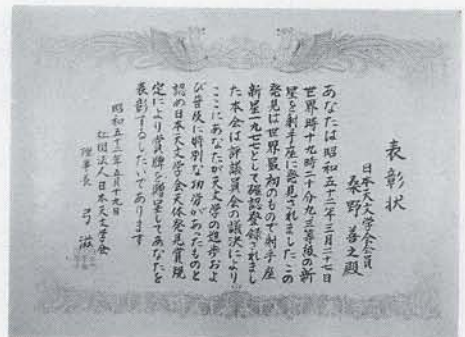 表彰状
日本天文学会会員
桑野善之殿
あなたは昭和五十二年三月二十七日
世界時十九時二十分九三等級の新
星を射手座に発見されましたこの
発見は世界最初のもので射手座
新星一九七七として確認登録されまし
た本会は評議員会の議決により
ここにあなたが天文学の進歩およ
び普及に特別な功労があったものと
認め日本天文学会天体発見賞規
定により賞牌を贈呈してあなたを
表彰するしだいであります
昭和五十三年五月十九日
社団法人日本天文学会
理事長 弓滋